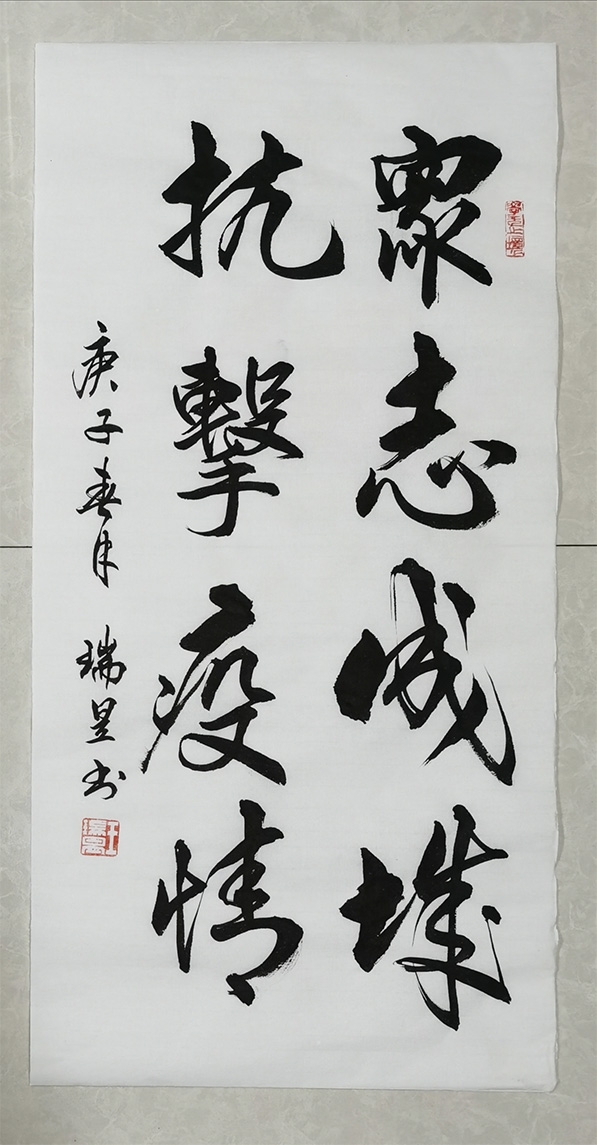 眾志成城
抗擊疫情
庚子春月 瑞昱书